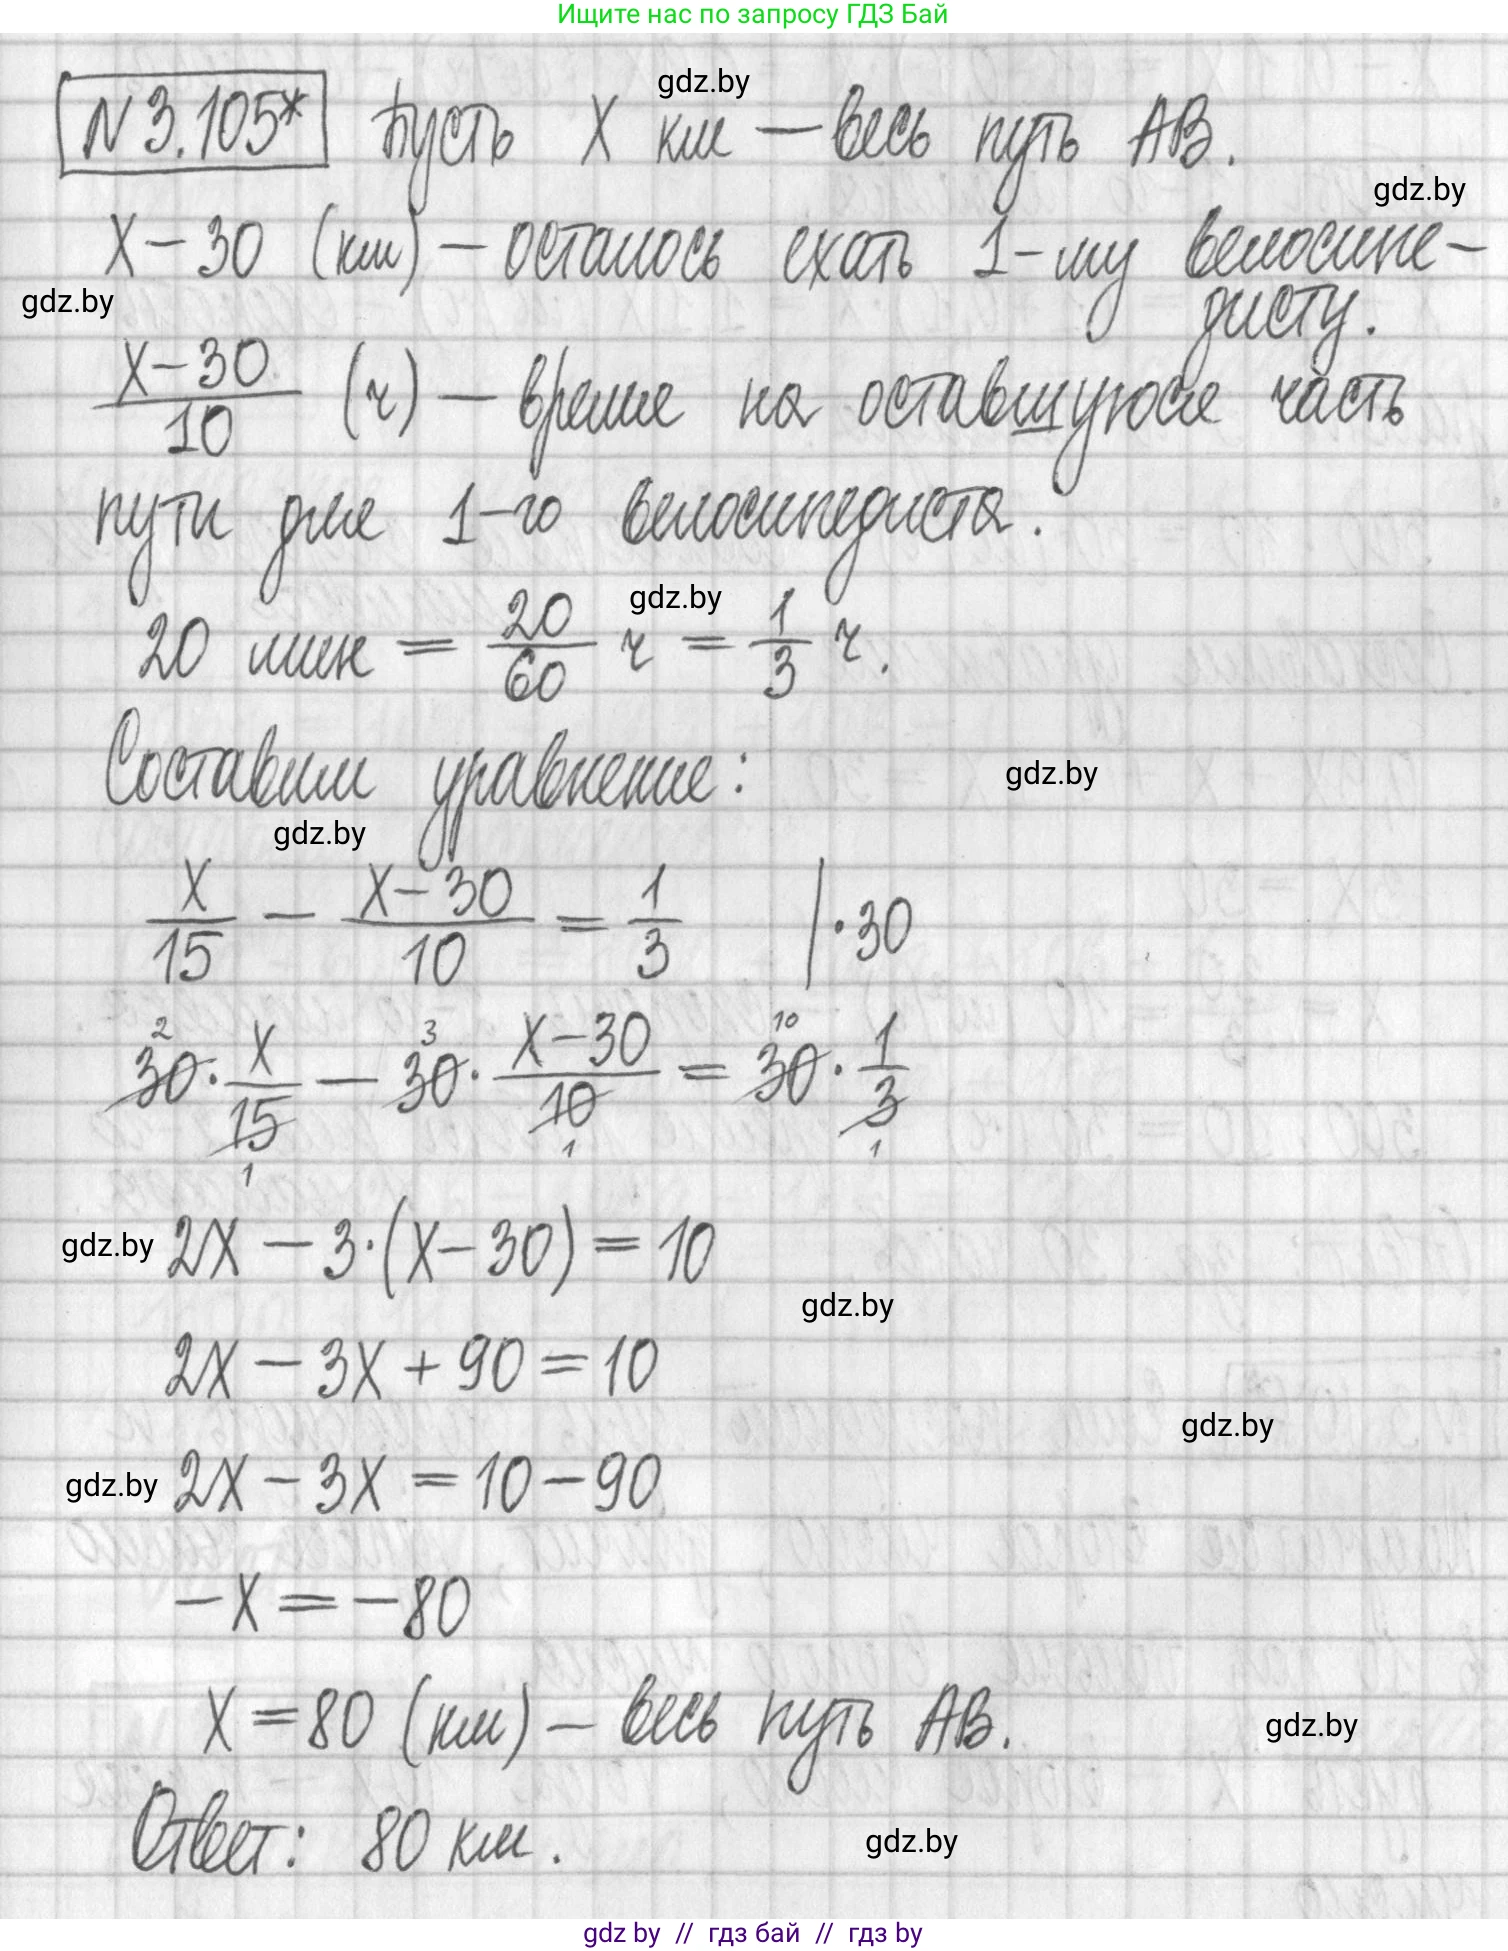 Ищите нас по запросу ГДЗ Бай
N 3.105* Пусть x км — весь путь AB.
gdz.by
gdz.by
x − 30 (км) — осталось ехать 1-му велосипе-
дисту.
gdz.by
(x − 30)/10 (ч) — время на оставшуюся часть
пути для 1-го велосипедиста.
gdz.by
20 мин = 20/60 ч = 1/3 ч.
Составим уравнение:
gdz.by
gdz.by
x/15 − (x − 30)/10 = 1/3 | · 30
2 3 10
30 · x/15 − 30 · (x − 30)/10 = 30 · 1/3
1 1 1
gdz.by
2x − 3 · (x − 30) = 10
gdz.by
2x − 3x + 90 = 10
gdz.by
gdz.by
2x − 3x = 10 − 90
−x = −80
x = 80 (км) — весь путь AB.
gdz.by
Ответ: 80 км.
gdz.by
gdz by // гдз бай // гдз by